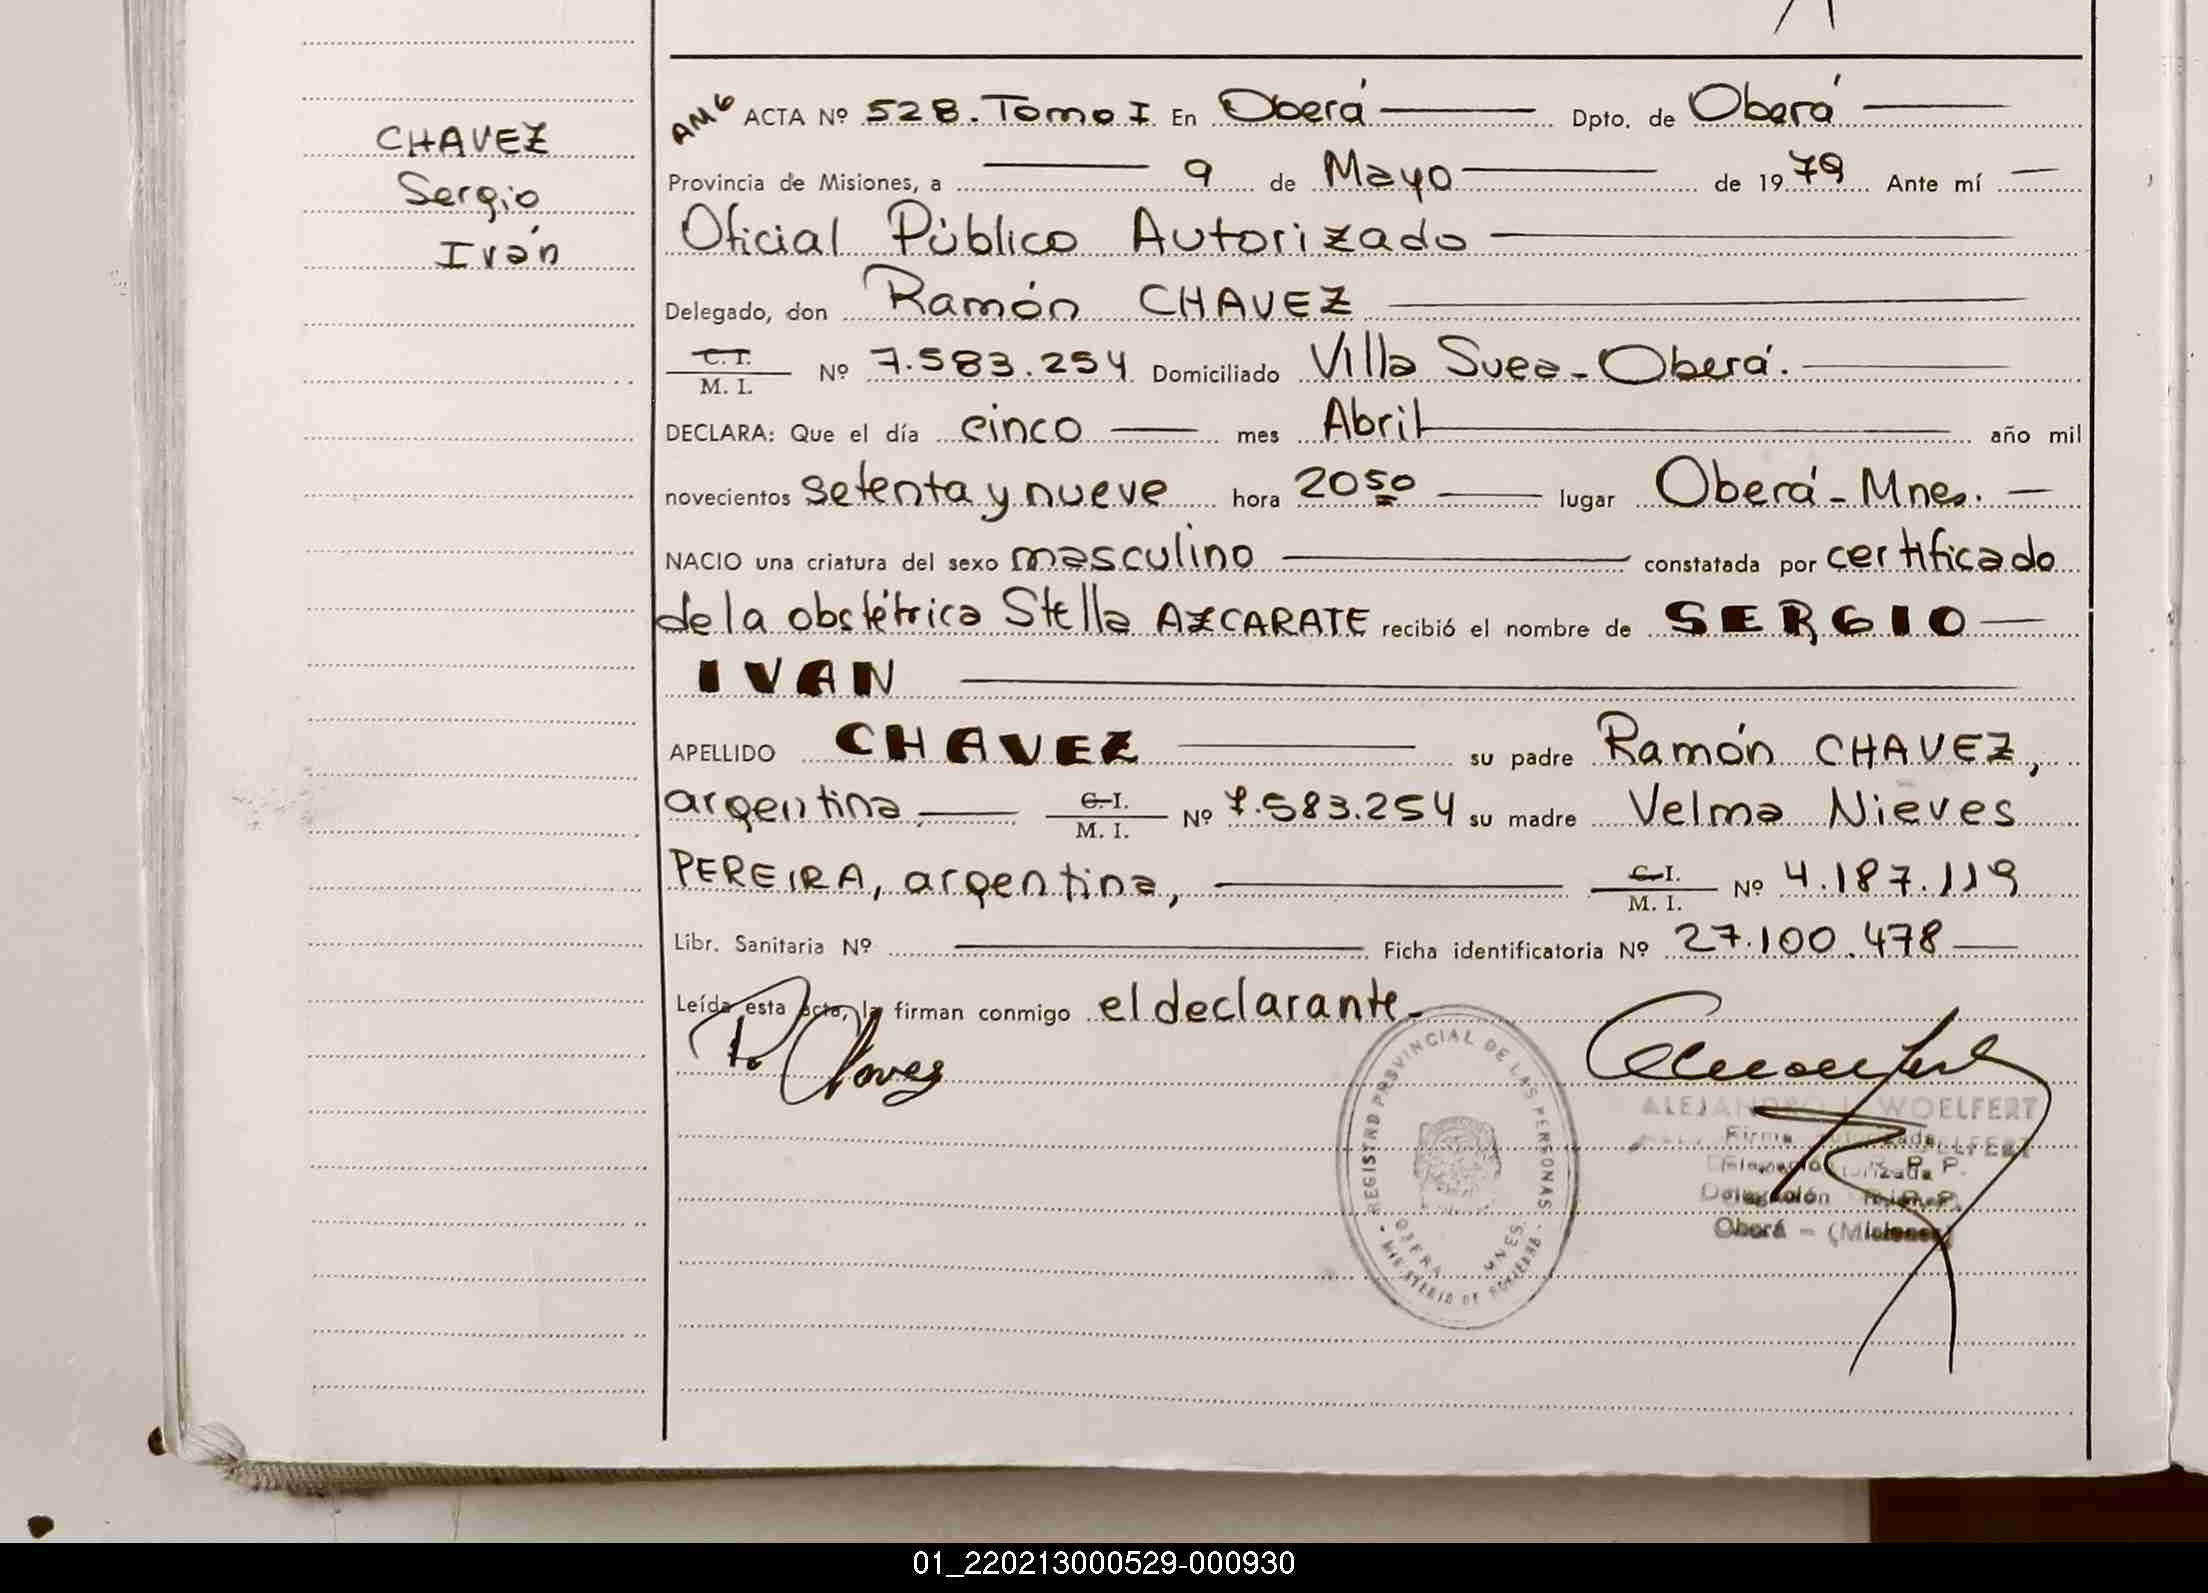 CHAVEZ
Sergio
Iván
AM6 ACTA Nº 528. Tomo I En Oberá Dpto. de Oberá
Provincia de Misiones, a 9 de Mayo de 1979 Ante mí
Oficial Público Autorizado
Delegado, don Ramón CHAVEZ
C. I.
M. I. Nº 7.583.254 Domiciliado Villa Svea - Oberá.
DECLARA: Que el día cinco mes Abril año mil
novecientos setenta y nueve hora 20 50 lugar Oberá - Mnes.
NACIO una criatura del sexo masculino constatada por certificado
de la obstétrica Stella AZCARATE recibió el nombre de SERGIO
IVAN
APELLIDO CHAVEZ su padre Ramón CHAVEZ,
argentina, C. I.
M. I. Nº 7.583.254 su madre Velma Nieves
PEREIRA, argentina, C. I.
M. I. Nº 4.187.119
Libr. Sanitaria Nº Ficha identificatoria Nº 27.100.478
Leída esta acta, la firman conmigo el declarante.
R. Chavez
REGISTRO PROVINCIAL DE LAS PERSONAS
OBERA MNES.
MINISTERIO DE GOBIERNO
ALEJANDRO WOELFERT
Firma Autorizada
Delegación R. P. P.
Oberá - (Misiones)
01_220213000529-000930